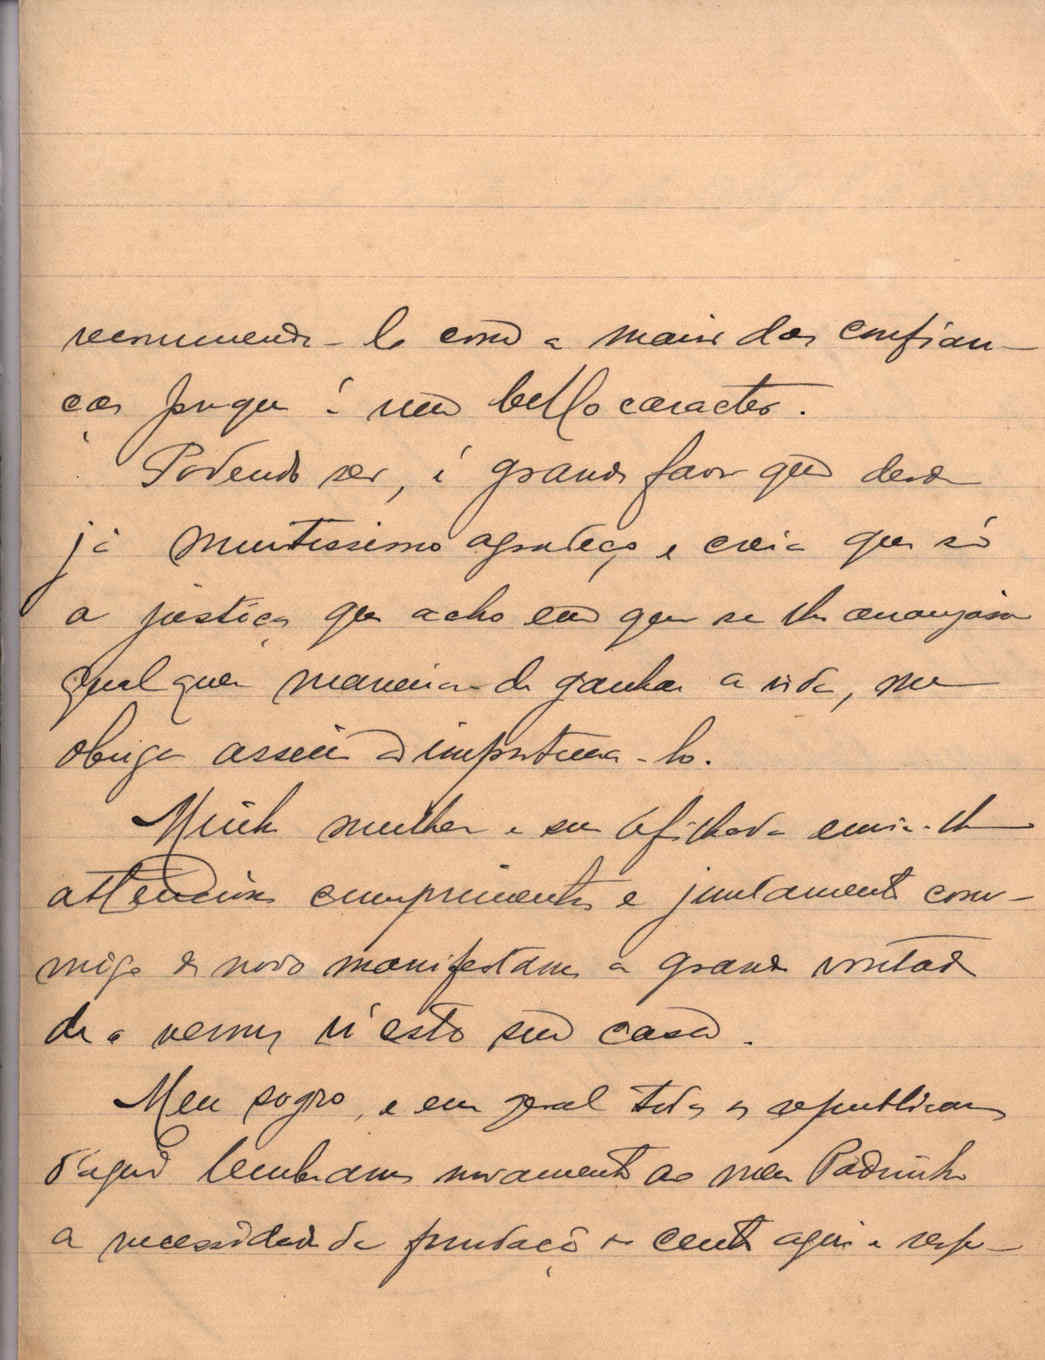 recommenda-lo como a maior das confian-
ças porque é um bello caracter.
Podendo ser, é grande favor que desde
já muitissimo agradeço e creia que só
a justiça que acho em que se lhe arranjasse
qualquer maneira de ganhar a vida, me
obriga assim a importuna-lo.
Minha mulher e sua afilhada envia-lhe
attenciosos cumprimentos e juntamente com-
migo de novo manifestam a grande vontade
de o vermos n'esta sua casa.
Meu sogro, e em geral todos os republicanos
d'aqui lembram novamente ao meu Padrinho
a necessidade da fundação do centro aqui e